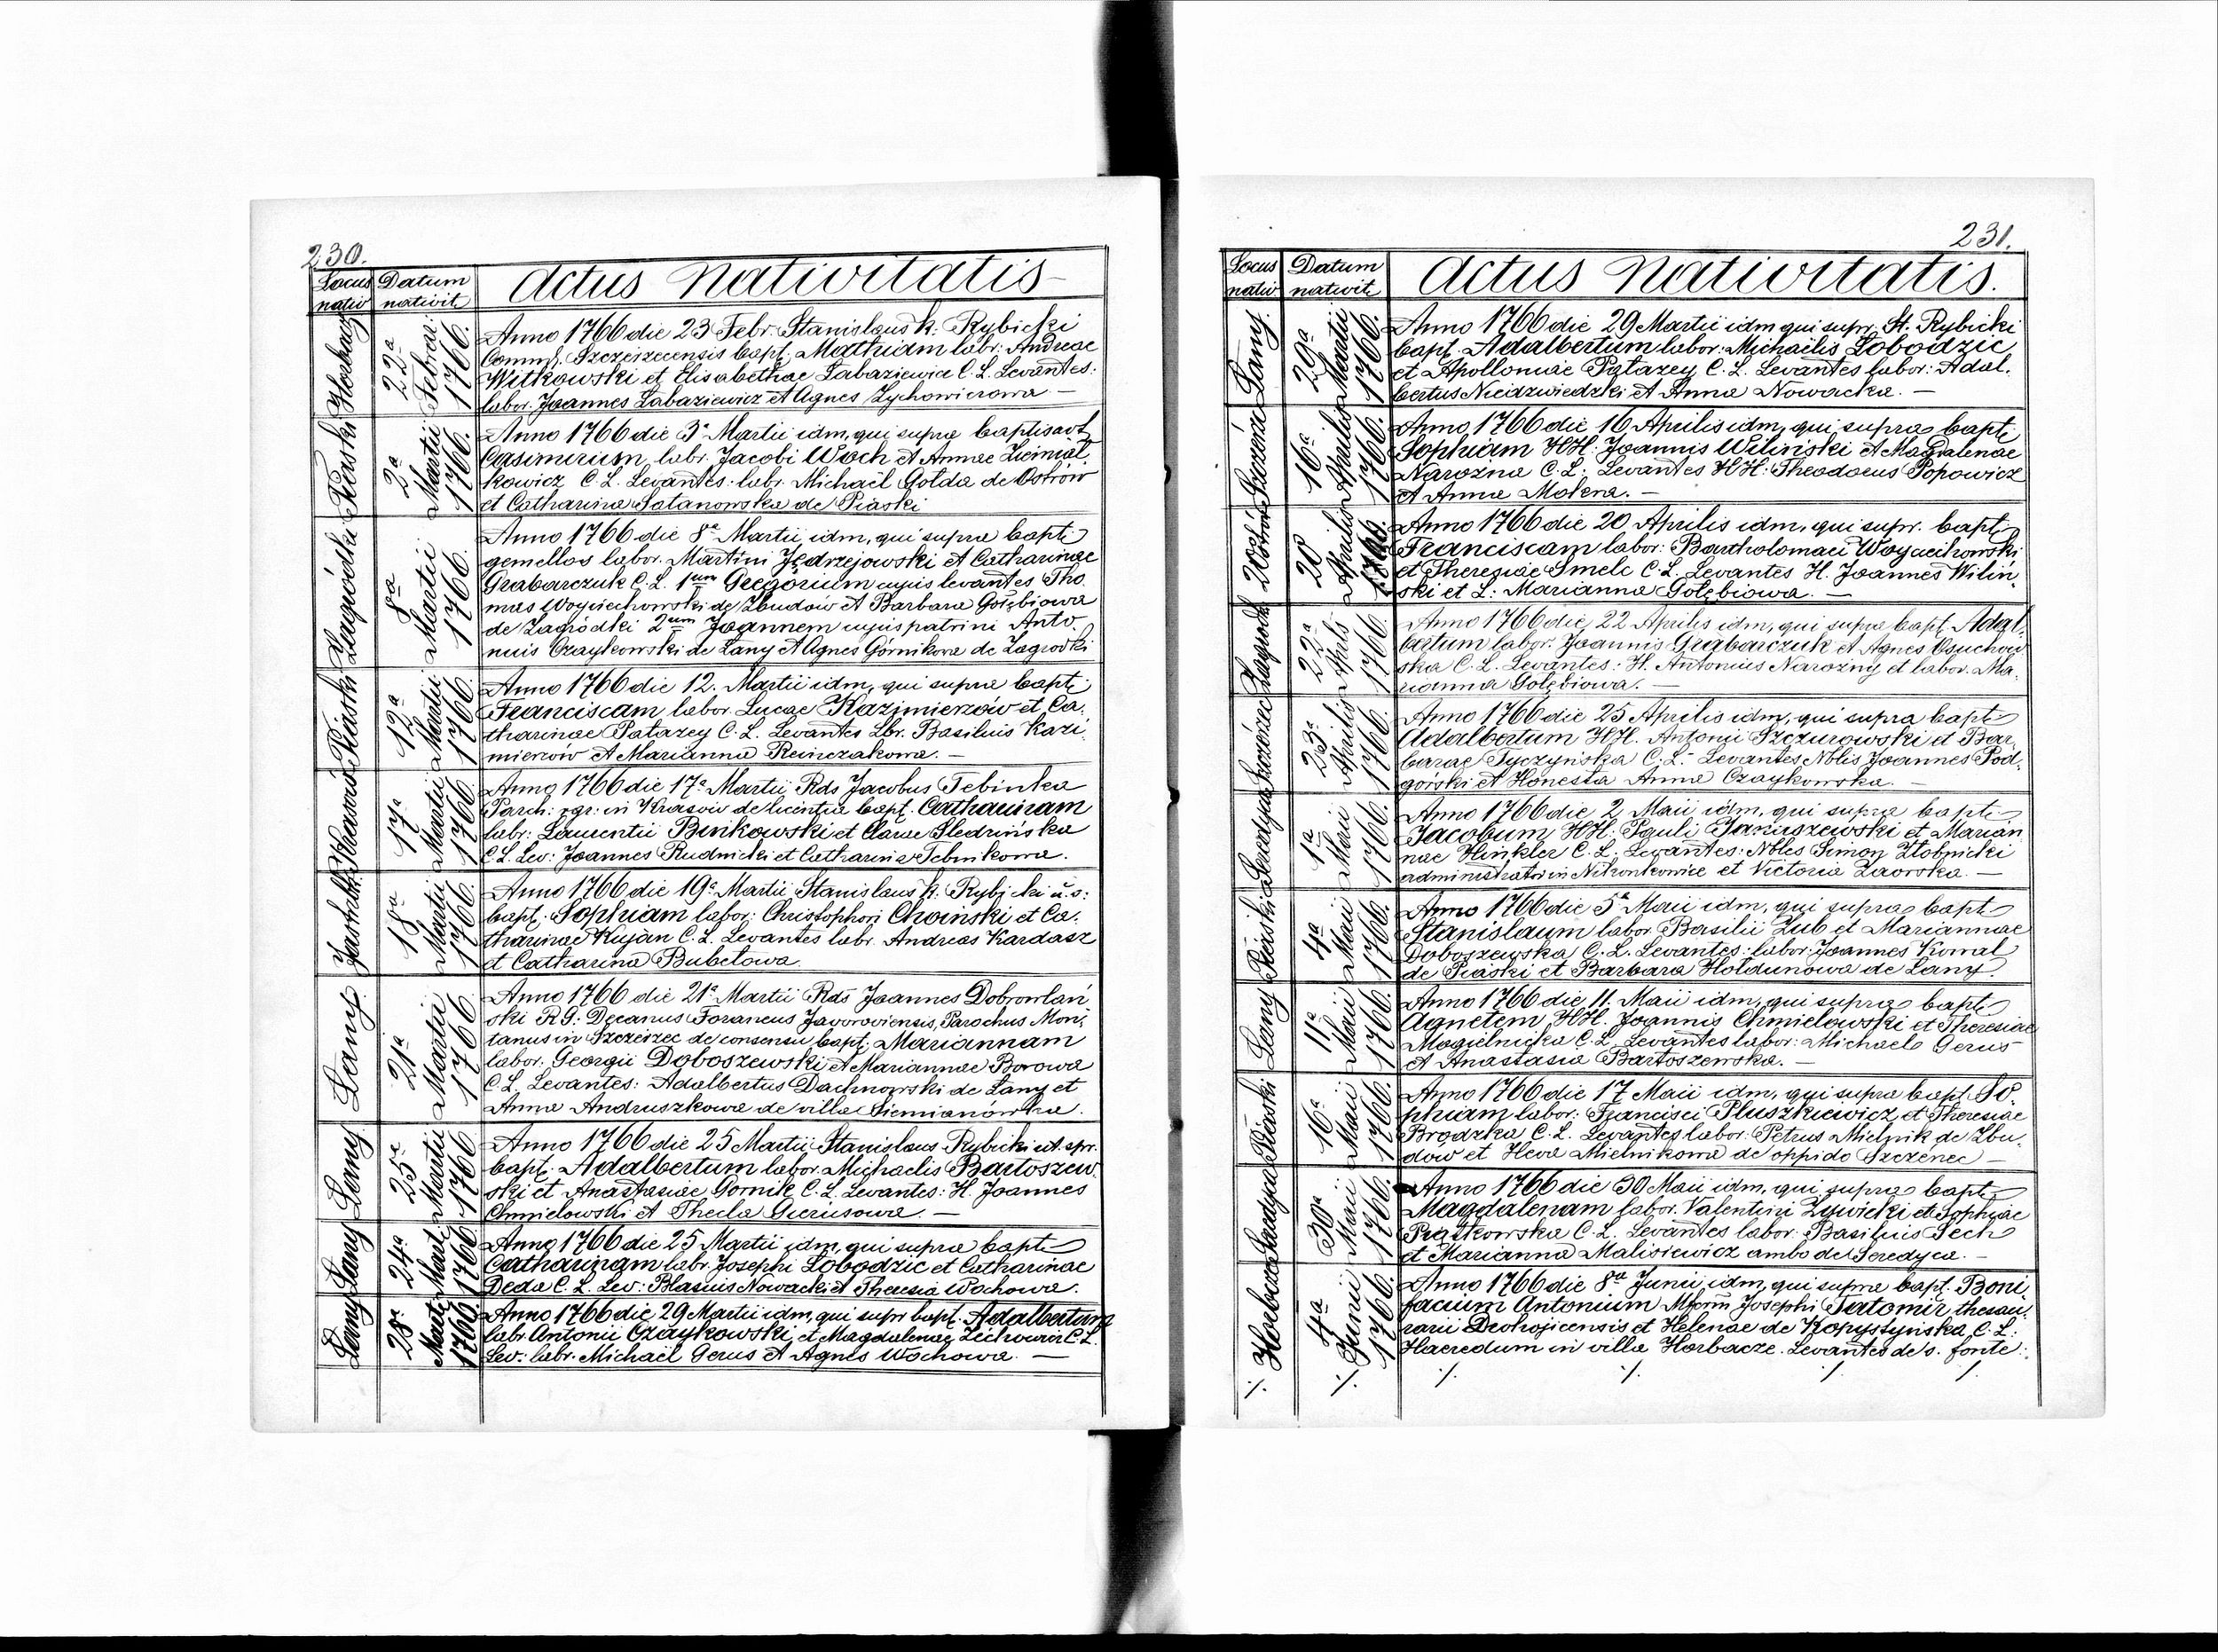 230.
Locus nativ
Datum nativit
Actus Nativitatis
Horbacz
22a Februar. 1766.
Anno 1766 die 23 Febr. Stanislaus k: Rybicki
Comm. Szczerzecensis bapt. Mathiam labr: Andreae
Witkowski et Elisabethae Labaziewicz C. L. Levantes:
labor. Joannes Labaziewicz et Agnes Zychowiczowa —
Piaski
2a Martii 1766.
Anno 1766 die 3a Martii idm, qui supra baptisavit
Casimirum labr. Jacobi Woch et Annae Ziemiał
kowicz C. L. Levantes: labr. Michaël Gołda de Ostrów
et Catharina Satanowska de Piaski
Zagródki
8a Martii 1766.
Anno 1766 die 8a Martii idm, qui supra bapti
gemellos labor. Martini Jędrzejowski et Catharinae
Grabarczuk C. L. 1um Gregorium cujus levantes Tho.
mas Woyciechowski de Zbudów et Barbara Gołębiowa
de Zagródki 2um Joannem cujus patrini Anto.
nius Czaykowski de Łany et Agnes Górnikowa de Zagrodki
Piaski
12a Martii 1766.
Anno 1766 die 12. Martii idm, qui supra bapti
Franciscam labor. Lucae Kazimierzów et Ca.
tharinae Patazey C. L. Levantes Lbr. Basilius Kazi.
mierzów et Marianna Reinczakowa. —
Krasów
17a Martii 1766.
Anno 1766 die 17a Martii Rds Jacobus Tebinka
Parch: rgr: in Krasów de licentia bapt. Catharinam
labr: Laurentii Binkowski et Clarae Sledzińska
C. L. Lev: Joannes Rudnicki et Catharina Tebinkowa.
18a Martii 1766.
Anno 1766 die 19a Martii Stanislaus k. Rybicki u. s:
bapt. Sophiam labor: Christophori Choiński et Ca.
tharinae Kujan C. L. Levantes labr. Andreas Kardasz
et Catharina Bubelowa.
Łany
21a Martii 1766.
Anno 1766 die 21a Martii Rds Joannes Dobrowlań
ski RG: Decanus Foraneus Javoroviensis, Parochus Mon.
tanus in Szczerzec de consensu bapt. Mariannam
labor. Georgii Doboszewski et Mariannae Borowa
C. L. Levantes: Adalbertus Dachnowski de Łany et
Anna Andruszkowa de villa Siemianówka.
Łany
25a Martii 1766.
Anno 1766 die 25 Martii Stanislaus Rybicki ut. spr.
bapt. Adalbertum labor. Michaelis Bartoszew
ski et Anastasiae Gornik C. L. Levantes: H. Joannes
Chmielowski et Thecla Gierusowa. —
Łany
24a Marti 1766
Anno 1766 die 25 Martii idm, qui supra bapt
Catharinam labr. Josephi Łobodzic et Catharinae
Deda C. L. Lev: Blasius Nowacki et Theresia Wochowa.
Łany
28a Marti 1766
Anno 1766 die 29 Martii idm, qui supr bapt. Adalbertum
labr. Antonii Czaykowski, et Magdalenae Zichowicz C. L.
Lev: labr. Michaël Gerus et Agnes Wochowa. —
231.
Locus nativ
Datum nativit
Actus Nativitatis.
Łany
29a Martii 1766.
Anno 1766 die 29 Martii idm qui supr. St. Rybicki
bapt. Adalbertum labor: Michaëlis Łobodzic
et Apolloniae Patazey C. L. Levantes labor: Adal.
bertus Niedzwiedzki et Anna Nowacka. —
16a Aprilis 1766.
Anno 1766 die 16 Aprilis idm, qui supra bapti
Sophiam HH: Joannis Wiliński et Magdalenae
Narozna C. L: Levantes HH: Theodoeus Popowicz
et Anna Motera. —
20 Aprilis 1766.
Anno 1766 die 20 Aprilis idm, qui supr. bapt.
Franciscam labor: Bartholomaei Woyciechowski
et Theresiae Smelc C. L. Levantes H. Joannes Wiliń.
ski et L: Marianna Gołębiowa. —
Zagrodki
22a Aprils 1766.
Anno 1766 die 22 Aprilis idm, qui supra bapt. Adal.
bertum labor. Joannis Grabarczuk et Agnes Osuchow
ska C. L. Levantes: H. Antonius Narozny et labor. Ma.
rianna Gołębiowa. —
Szczerzec
23a Aprilis 1766.
Anno 1766 die 25 Aprilis idm, qui supra bapt
Adalbertum HH. Antonii Szczurowski et Bar.
barae Tyczyńska C. L. Levantes Nblis Joannes Pod.
górski et Honesta Anna Czaykowska. —
Seredyca
1a Maii 1766.
Anno 1766 die 2 Maii idm, qui supra bapt
Jacobum HH: Pauli Januszewski et Marian
nae Hinkler C. L. Levantes: Nbles Simon Złobnicki
administrator in Nikonkowice et Victoria Zaorska. —
Piaski
4a Maii 1766.
Anno 1766 die 5a Maii idm, qui supra bapt
Stanislaum labor Basilii Zub et Mariannae
Doboszewska C. L. Levantes: labor. Joannes Kowal
de Piaski et Barbara Hołdunowa de Łany.
Łany
11a Maii 1766.
Anno 1766 die 11. Maii idm, qui supra bapt
Agnetem HH. Joannis Chmielowski et Theresiae
Magielnicka C. L. Levantes labor: Michael Gerus
et Anastasia Bartoszewska. —
Piaski
16a Maii 1766.
Anno 1766 die 17 Maii idm, qui supra bapt. So.
phiam labor: Francisci Pluszkiewicz et Theresiae
Brodzka C. L. Levantes labor: Petrus Mielnik de Zbu.
dów et Heva Mielnikowa de oppido Szczerzec —
Serdyca
30a Maii 1766.
Anno 1766 die 30 Maii idm, qui supra bapt
Magdalenam labor. Valentini Zywicki et Sophiae
Piątkowska C. L. Levantes labor. Basilius Sech
et Marianna Malisiewicz ambo de Seredyca. —
Horbacze
4a Junii 1766.
Anno 1766 die 8a Junii idm, qui supra bapt. Boni.
facium Antonium Mfcrm Josephi Tatomir thesau.
rarii Drohojicensis et Helenae de Kopystyńska C. L:
Haeredum in villa Horbacze. Levantes de s. fonte: